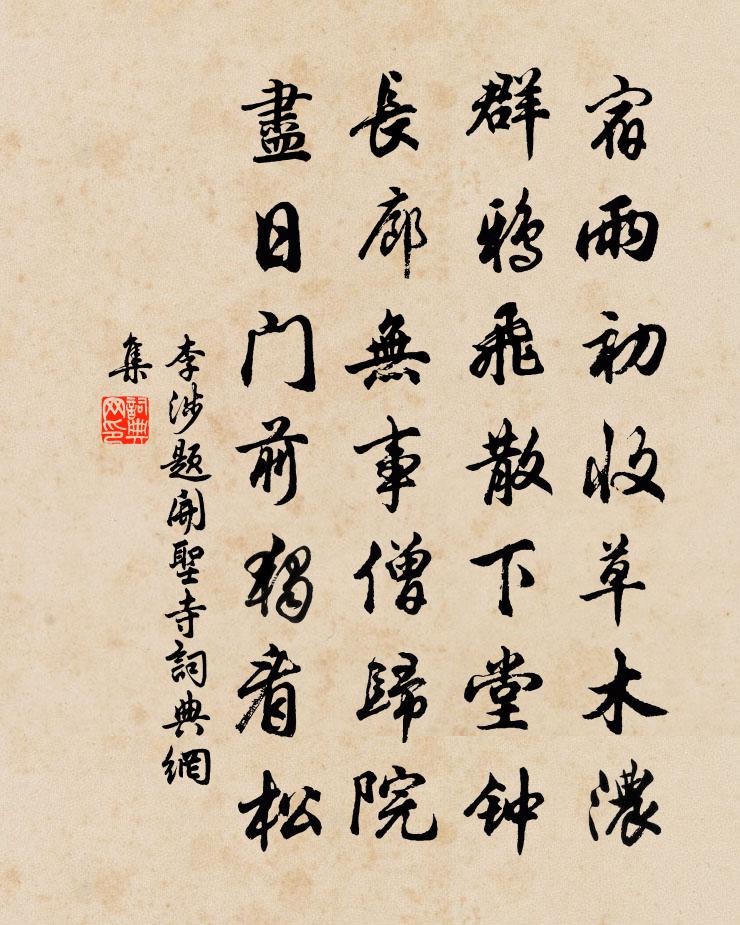 宿雨初收草木濃
群鴉飛散下堂钟
長廊無事僧歸院
盡日门前獨看松
李涉題開聖寺詞典網
集
詞典
网印